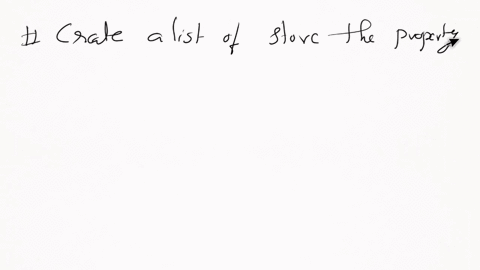 # Crate a list of store the property